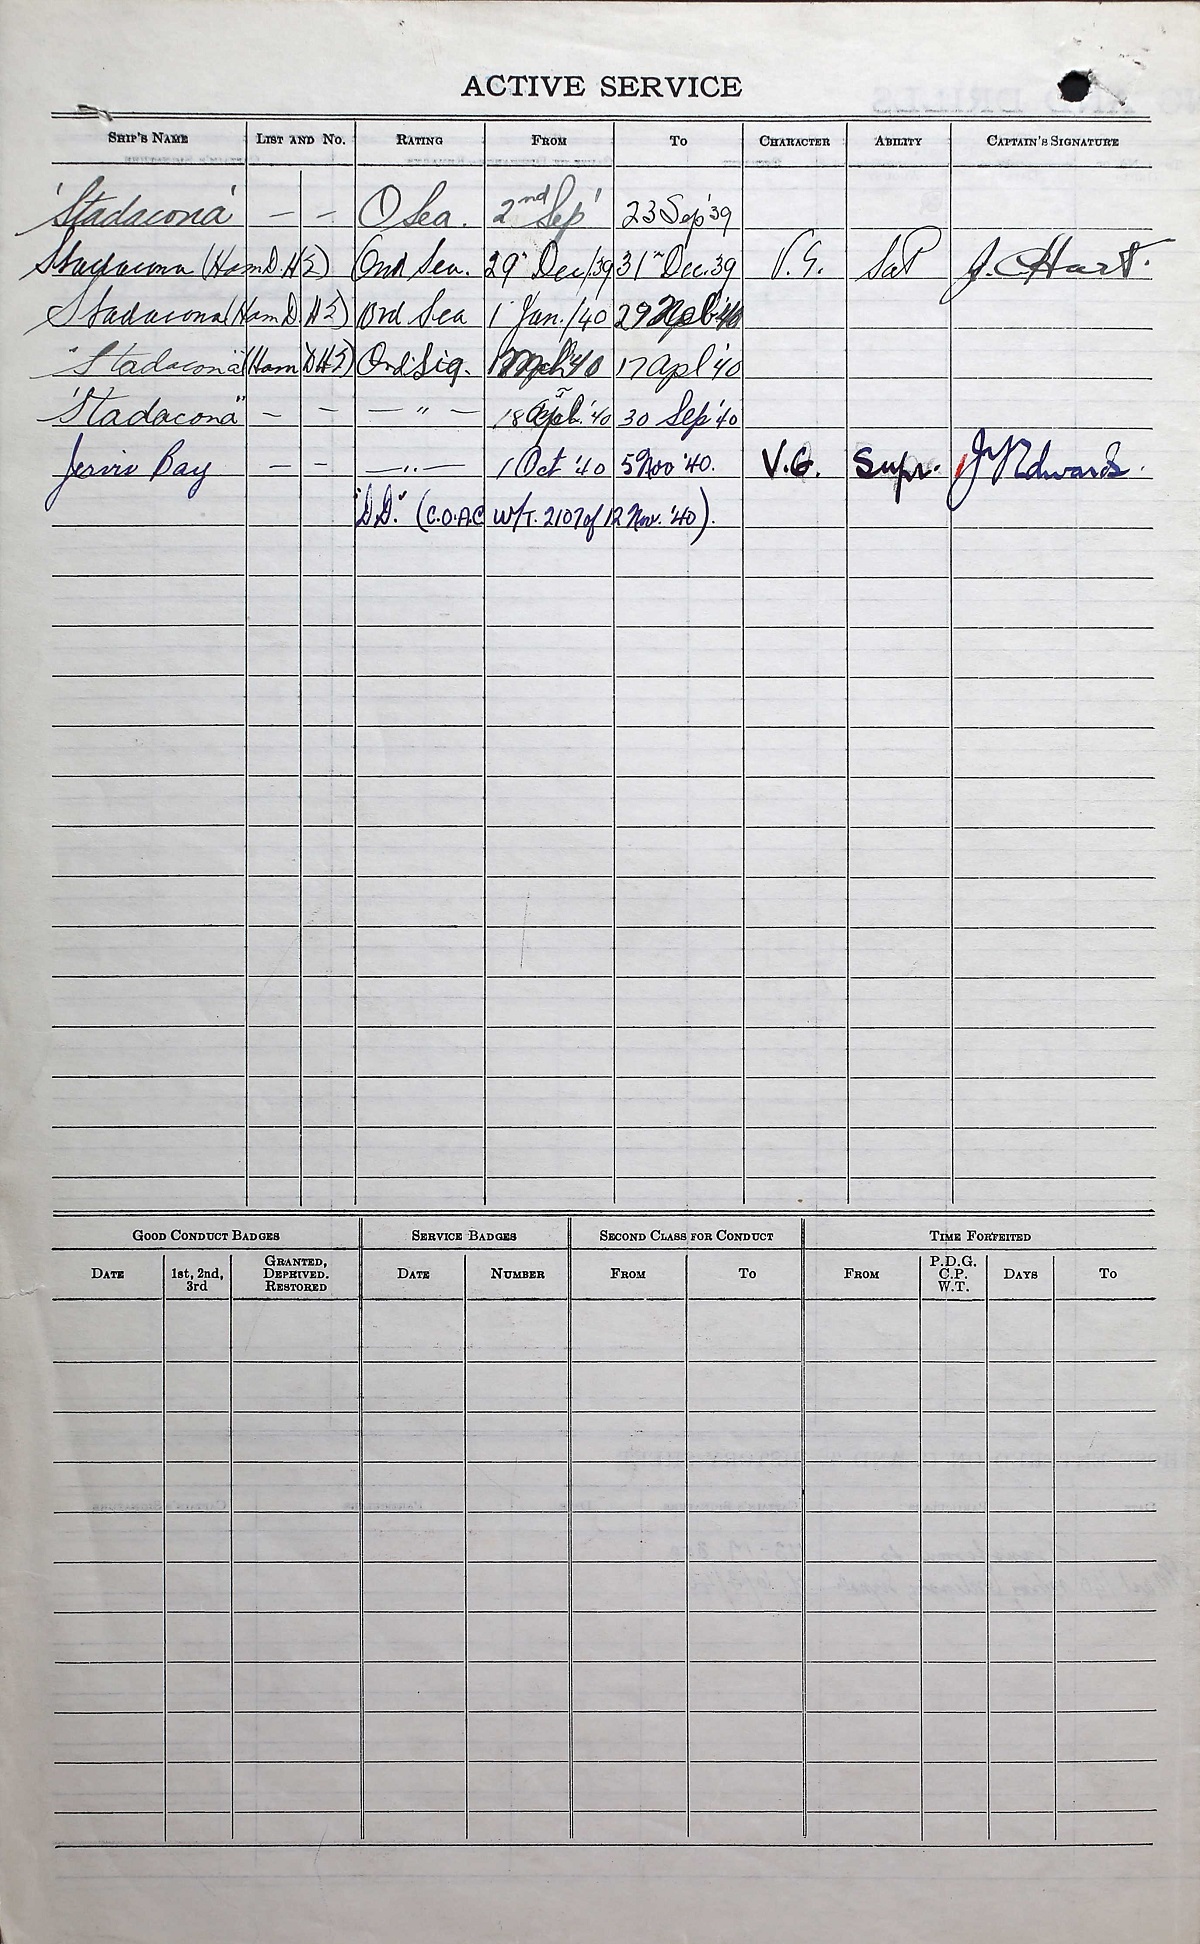 ACTIVE SERVICE
SHIP'S NAME LIST AND NO. RATING FROM TO CHARACTER ABILITY CAPTAIN'S SIGNATURE
'Stadacona' — — O Sea. 2nd Sep' 23 Sep '39
Stadacona (Ham D.H.E) Ord Sea. 29" Dec/39 31" Dec. 39 V.G. Sat J. C. Hart.
Stadacona (Ham D H E) Ord Sea 1 Jan./40 29 '40
"Stadacona" (Ham D H E) Ord Sig. 1 Mch '40 17 Apl '40
'Stadacona" — — — " — 18 Apl. '40 30 Sep '40
Jervis Bay — — — " — 1 Oct '40 5 Nov '40. V.G. Supr. Edwards.
"D.D." (C.O.A.C W/T. 2107 of 12 Nov. '40).
GOOD CONDUCT BADGES SERVICE BADGES SECOND CLASS FOR CONDUCT TIME FORFEITED
DATE 1st, 2nd, 3rd GRANTED, DEPRIVED. RESTORED DATE NUMBER FROM TO FROM P.D.G. C.P. W.T. DAYS TO